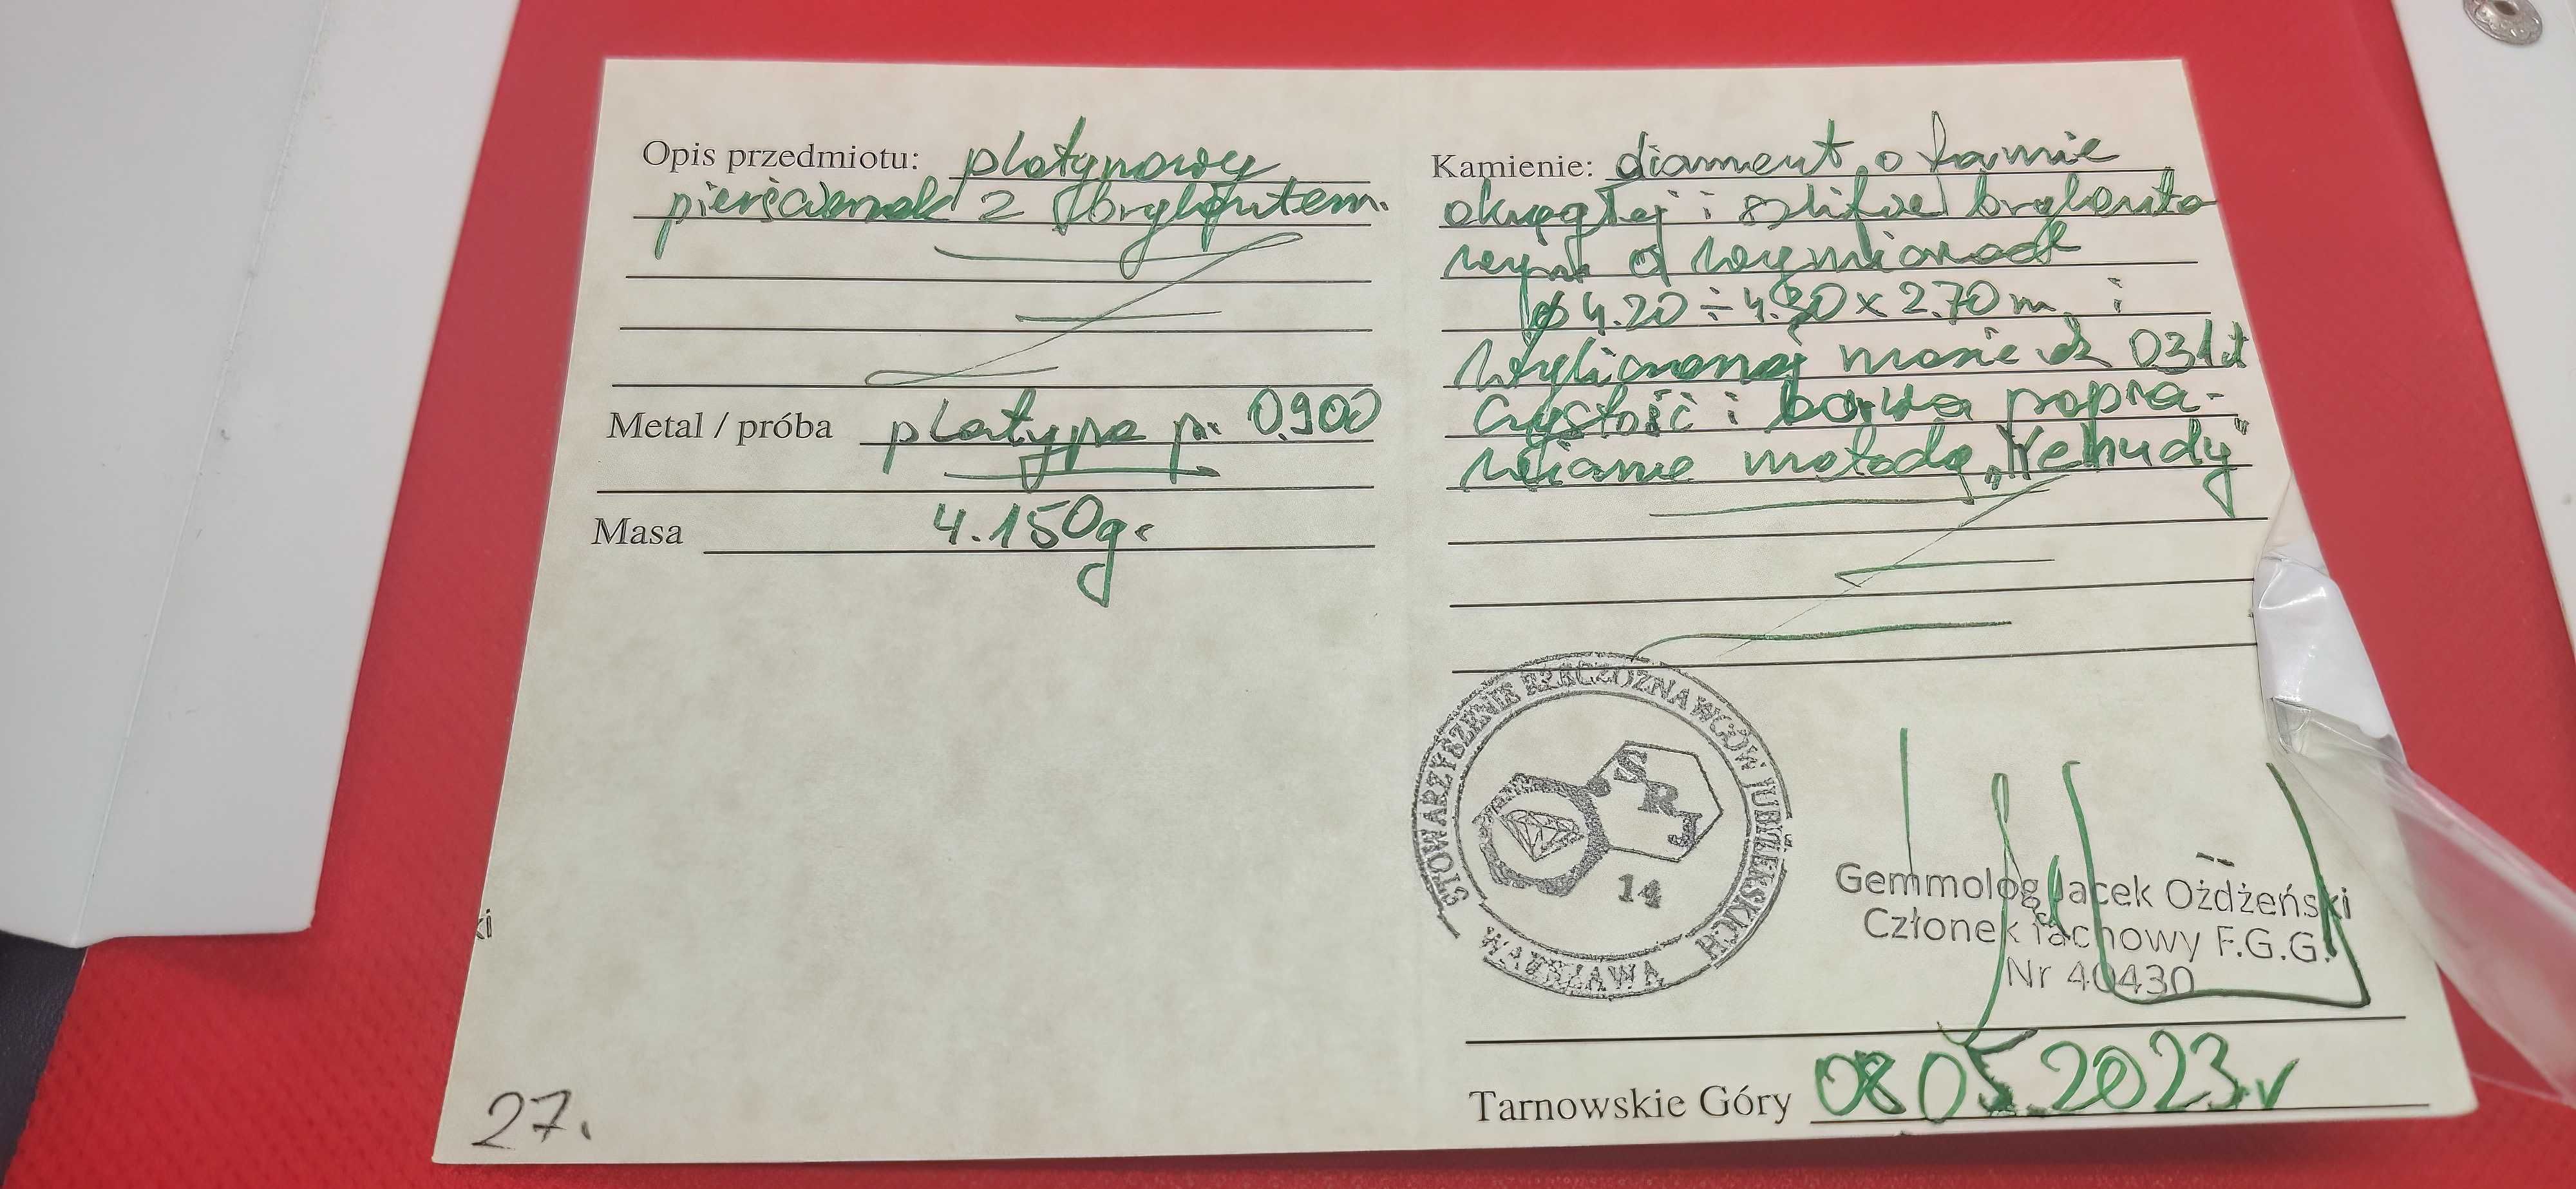 Opis przedmiotu: platynowy
pierścionek z brylantem.
Metal / próba platyna pr. 0.900
Masa 4.150g.
27.
ki
Kamienie: diament o formie
okrągłej i szlifie brylanto
wym o wymiarach
ø 4.20 ÷ 4.30 x 2.70 m i
wyliczonej masie ok 0.31ct
czystość i barwa popra-
wiane metodą „Yehudy"
STOWARZYSZENIE RZECZOZNAWCÓW JUBILERSKICH
WARSZAWA
SRJ
14
Gemmolog Jacek Ożdżeński
Członek fachowy F.G.G.
Nr 40430
Tarnowskie Góry 08 05.2023.r